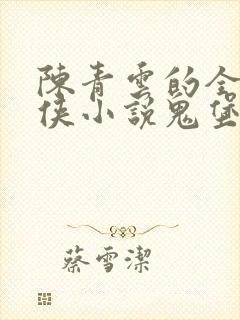 陳青雲的全
俠小說鬼堡
蔡雪潔